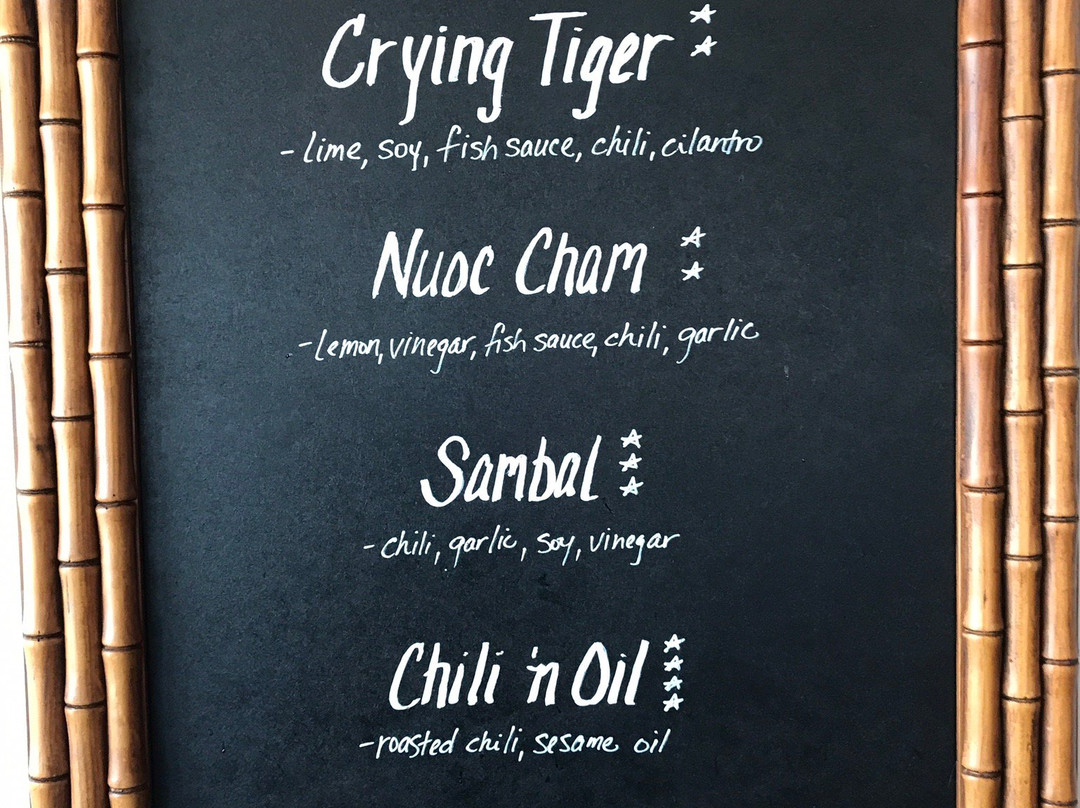 Crying Tiger
- lime, soy, fish sauce, chili, cilantro
Nuoc Cham
- Lemon, vinegar, fish sauce, chili, garlic
Sambal
- chili, garlic, soy, vinegar
Chili 'n Oil
- roasted chili, sesame oil